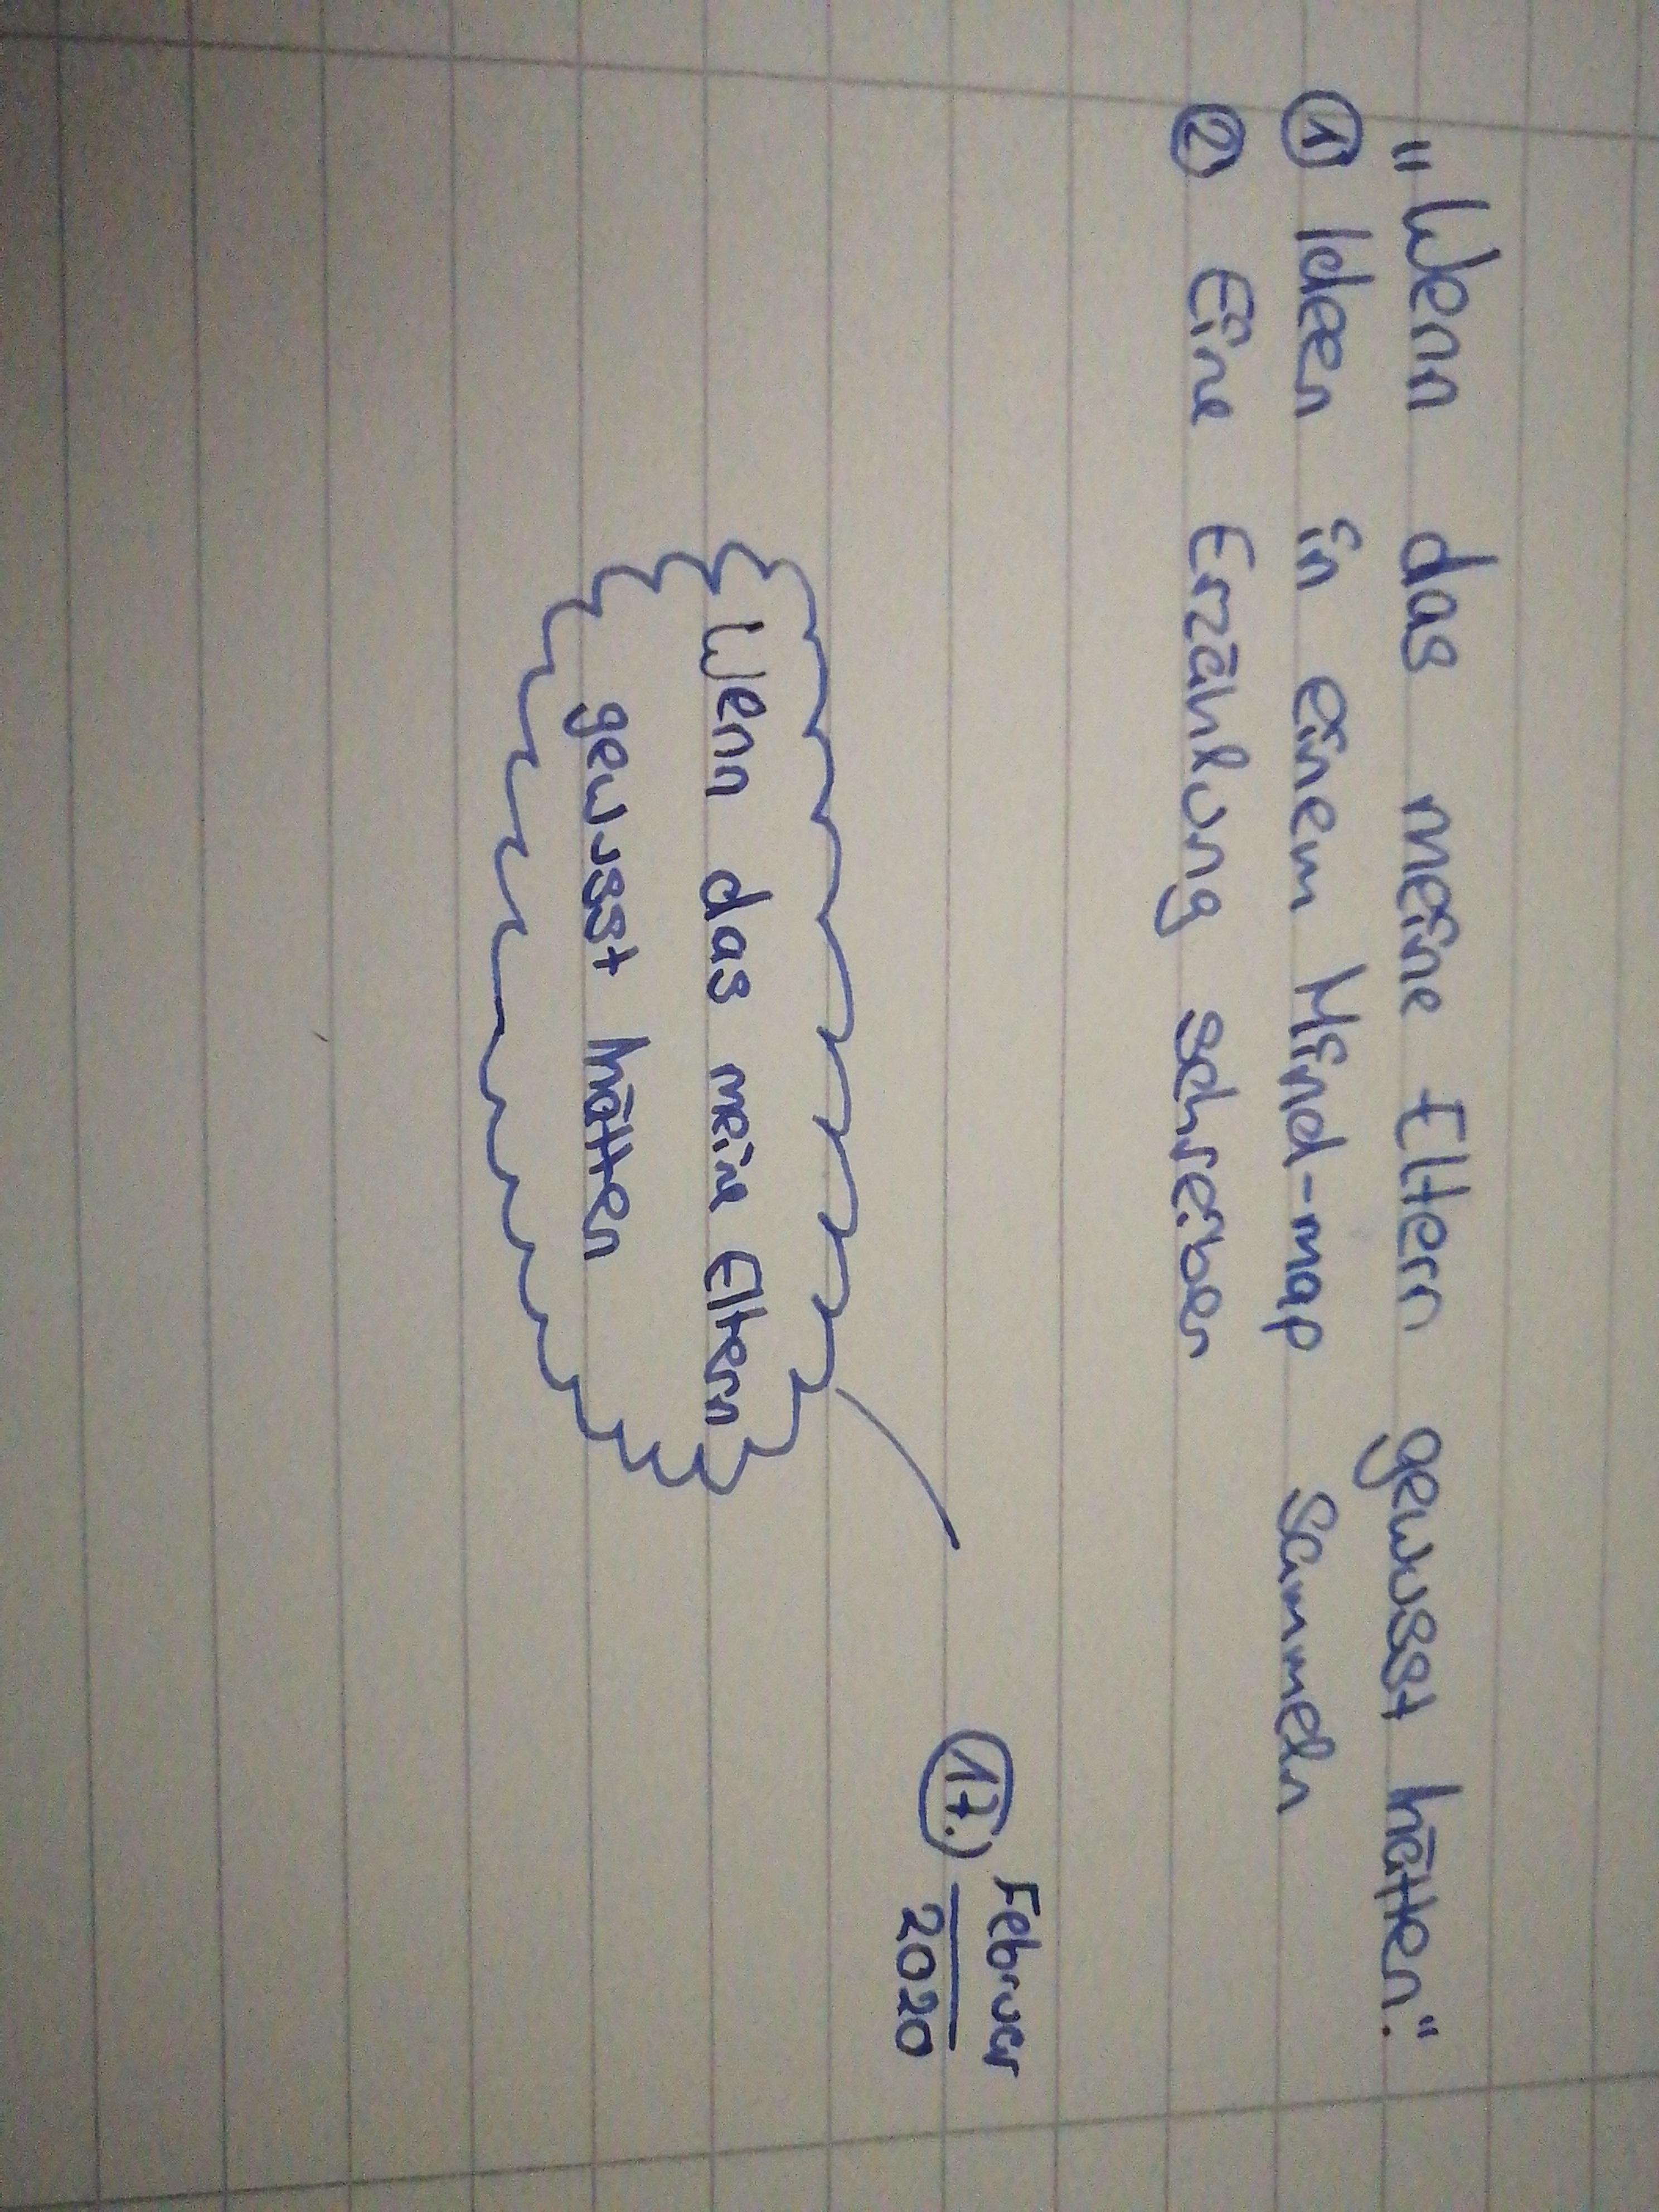 „Wenn das meine Eltern gewusst hätten."
① Ideen in einem Mind-map sammeln
② Eine Erzählung schreiben
17. Februar
2020
Wenn das meine Eltern
gewusst hätten